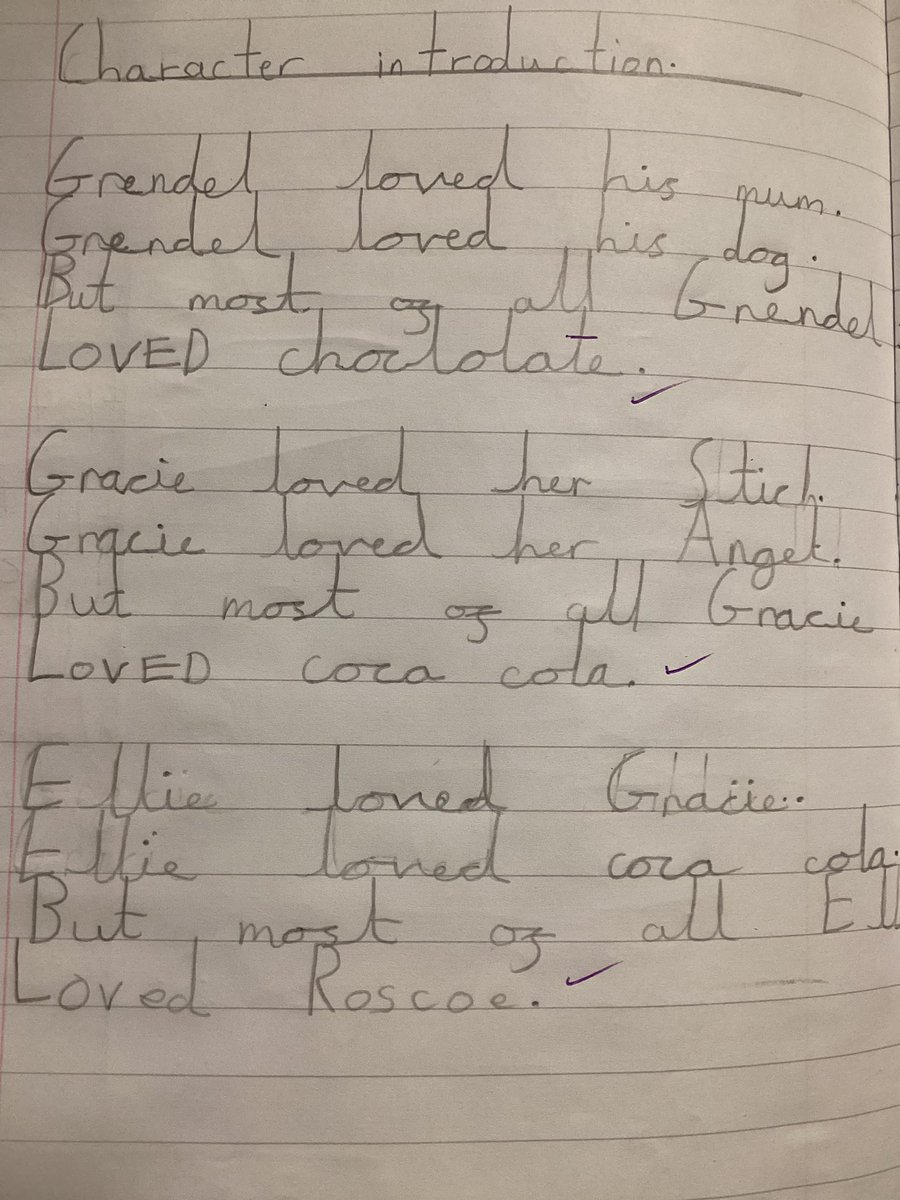 Character introduction.
Grendel loved his mum.
Grendel loved his dog.
But most of all Grendel
LOVED choclolate.
Gracie loved her Stich.
Gracie loved her Angel.
But most of all Gracie
LOVED coca cola.
Ellie loved Gracie.
Ellie loved coca cola.
But most of all Ell
Loved Roscoe.